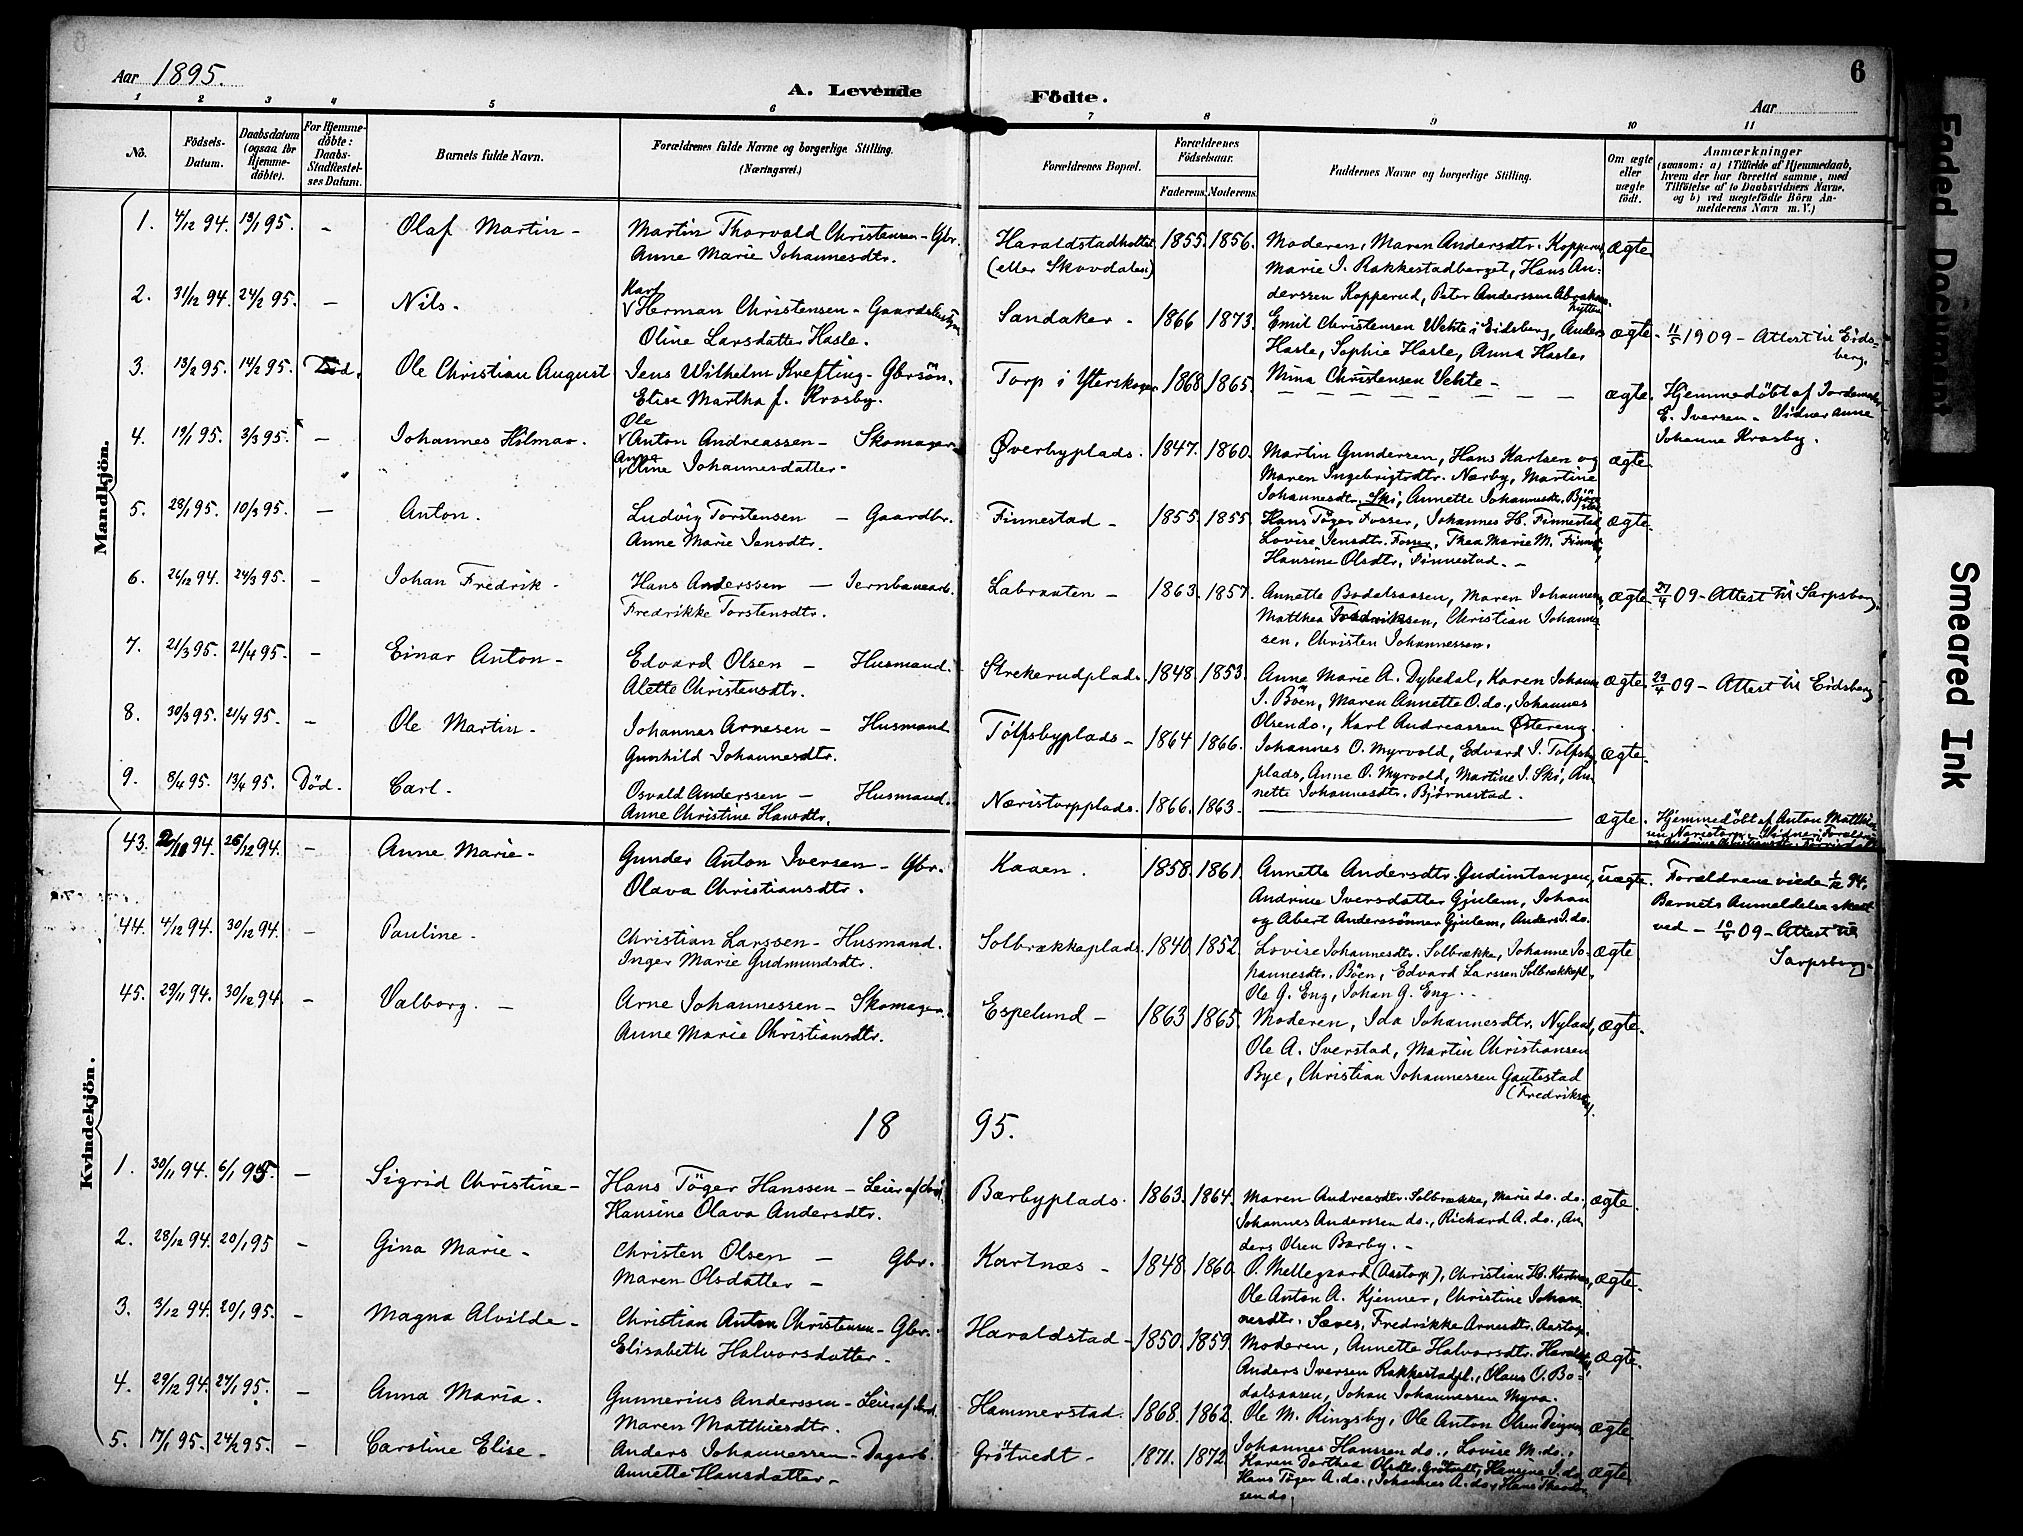 Aar 1895.
A. Levende Födte.
Aar
6
1 2 3 4 5 6 7 8 9 10 11
No.
Födsels-Datum.
Daabsdatum (ogsaa for Hjemme-döbte).
For Hjemme-döbte: Daabs-Stadfæstel-ses Datum.
Barnets fulde Navn.
Forældrenes fulde Navne og borgerlige Stilling. (Næringsvei.)
Forældrenes Bopæl.
Forældrenes Födselsaar.
Faderens. Moderens.
Faddernes Navne og borgerlige Stilling.
Om ægte eller uægte födt.
Anmærkninger (saasom: a) i Tilfælde af Hjemmedaab, hvem der har forrettet samme, med Tilföielse af to Daabsvidners Navne, og b) ved uægtefödte Börn An-melderens Navn m. V.)
Mandkjön.
1. 4/12 94. 13/1 95. - Olaf Martin - Martin Thorvald Christensen - Gbr.
Anne Marie Johannesdtr.
Haraldstadholtet (eller Skovdalen) 1855. 1856. Moderen, Maren Andersdtr. Kopperud,
Marie J. Rakkestadberget, Hans An-
derssen Kopperud, Peter Anderssen
ægte.
2. 31/12 94. 24/2 95. - Nils. Karl
Herman Christensen -
Oline Larsdatter Hasle.
Sandaker - 1866 1873. Emil Christensen Vehte i Eidsberg, Anders
Hasle, Sophie Hasle, Anna Hasle,
Mina Christensen Vehte -
ægte. 11/5 1909 - Attest til Eids-
berg.
3. 13/2 95. 14/2 95. Död. Ole Christian August Jens Wilhelm Krefting - Gbrsön.
Elise Martha f. Krosby.
Torp i Ytterskogen 1868 1865. ægte. Hjemmedöbt af Jordemoder
E. Iversen - Vidner Anne
Johanne Krosby.
4. 19/1 95. 3/3 95. - Johannes Hilmar. Ole
Anton Andreassen - Skomager.
Anna
Oline Johannesdatter -
Øverbyplads. 1847. 1860. Martin Gundersen, Hans Karlsen og
Maren Ingebrigtsdtr. Nærby, Martine
Johannesdtr. Ski, Annette Johannesdtr.
ægte
5. 28/1 95. 10/3 95. - Anton. Ludvig Torstensen - Gaardbr.
Anne Marie Jensdtr.
Finnestad - 1855. 1855. Hans Töger Fosser, Johannes H. Finnestad,
Lovise Jensdtr. Fosser, Thea Marie M.
Hansine Olsdtr. Finnestad. -
ægte.
6. 26/12 94. 24/3 95. - Johan Fredrik - Hans Anderssen - Jernbanearb.
Fredrikke Torstensdtr.
Labraaten - 1863. 1857. Annette Bodalsaasen, Maren
Matthea Fredriksen, Christian Johannes-
sen, Christen Johannessen.
ægte. 29/4 09 - Attest til Sarpsborg.
7. 21/3 95. 21/4 95. - Einar Anton - Edvard Olsen - Husmand.
Alette Christensdtr.
Strekerudplads. 1848. 1853. Anne Marie A. Dybedal, Karen
J. Böen, Maren Annette O. do., Johannes
Olsen do., Karl Andreassen Østereng.
ægte. 29/4 09 - Attest til Eidsberg
8. 30/3 95. 21/4 95. - Ole Martin - Johannes Arnesen - Husmand
Gunhild Johannesdtr.
Tölfsbyplads - 1864 1866. Johannes O. Myrvold, Edvard J. Tolfsby
plads, Anne O. Myrvold, Martine J. Ski, An-
nette Johannesdtr. Bjørnestad.
ægte.
9. 8/4 95. 13/4 95. Död. Carl. Osvald Anderssen - Husmand.
Anne Christine Hansdtr.
Næristorpplads. 1866. 1863. ægte. Hjemmedöbt af Anton
Kvindekjön.
43. 94. 26/12 94. - Anne Marie - Gunder Anton Iversen - Gbr.
Olava Christiansdtr.
Kaaen. 1858. 1861. Annette Andersdtr. Gudimtangen,
Andrine Iversdatter Gjulem, Johan
og Abert Anderssönner Gjulem, Anders J. do.
uægte. Forældrene viede 94.
Barnets Anmeldelse skeet
ved - 10/4 09 - Attest til
Sarpsborg.
44. 4/12 94. 30/12 94. - Pauline. Christian Larssen - Husmand.
Inger Marie Gudmundsdtr.
Solbrækkeplads. 1840. 1852. Lovise Johannesdtr. Solbrække, Johanne Jo-
hannesdtr. Böen, Edvard Larssen Solbrækkepl.,
Ole G. Eng, Johan G. Eng.
ægte.
45. 29/11 94. 30/12 94. - Valborg. - Arne Johannessen - Skomager.
Anne Marie Christiansdtr.
Espelund - 1863. 1865. Moderen, Ida Johannesdtr. Nyland,
Ole A. Sverstad, Martin Christiansen
Bye, Christian Johannessen Gautestad
ægte.
18 95.
1. 30/11 94. 6/1 95. - Sigrid Christine - Hans Töger Hanssen - Leier af Jord
Hansine Olava Andersdtr.
Bærbyplads. 1863. 1864. Maren Andreasdtr. Solbrække, Marie do. do.,
Johannes Anderssen do., Richard A. do., An
ders Olsen Bærby. -
ægte.
2. 28/12 94. 20/1 95 - Gina Marie - Christen Olsen - Gbr.
Maren Olsdatter -
Kartnæs - 1848. 1860. P. Mellegaard (Aastorp), Christian H. Kartnæs,
Ole Anton A. Kjenner, Christine Johan-
nesdtr. Sæves, Fredrikke Arnesdtr. Aastorp.
ægte.
3. 3/12 94. 20/1 95. - Magna Alvilde - Christian Anton Christensen - Gbr.
Elisabeth Halvorsdatter -
Haraldstad - 1850. 1859. Moderen, Annette Halvorsdtr.
Anders Iversen Rakkestadpl., Olaus O. Bo-
dalsaasen, Johan Johannessen Myra.
ægte.
4. 29/12 94. 27/1 95. - Anna Maria. Gunnerius Anderssen - Leier af Jord.
Maren Matthiesdtr.
Hammerstad. 1868. 1862. Ole M. Ringsby, Ole Anton Olsen
Johannes Hanssen do., Lovise M. do.,
ægte.
5. 17/1 95. 24/2 95. - Caroline Elise - Anders Johannessen - Dagarb.
Annette Hansdatter -
Grötvedt - 1871. 1872 Karen Dorthea Olsdtr. Grötvedt, Hansine J. do.
Hans Töger A. do., Johannes A. do., Hans
sen do.
ægte
Faded Document
Smeared Ink